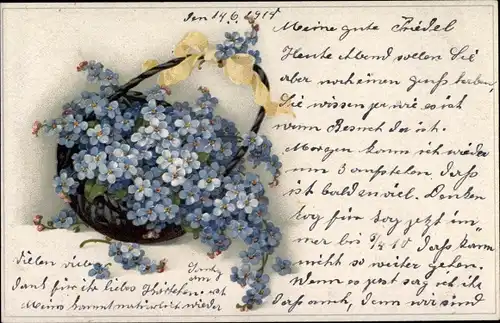 den 14.6.1917
Meine gute Friedel
Heute abend sollen Sie
aber noch einen gruß haben,
Sie wissen ja wie es ist
wenn Besuch da ist.
Morgen kann ich wieder
um 3 aufstehen, daß
ist bald zu viel. Denken
Tag für Tag jetzt im
mer bis 3/4 10 daß kann
nicht so weiter gehen.
Wenn es jetzt sag ich ihr
daß auch, denn wir sind
Vielen vielen
dank für ihr liebes
Meine kommt natürlich wieder